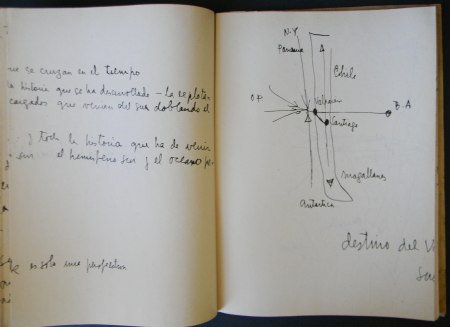 se cruzan en el tiempo
la historia que se ha desarrollado – la
cargados que venian del sur doblando el
y toda la historia que ha de venir
sur el hemisferio sur y el oceano
es solo una
N.Y
Panama
Chile
O.P.
Valparaiso
B.A
Santiago
Magallanes
Antartica
destino del